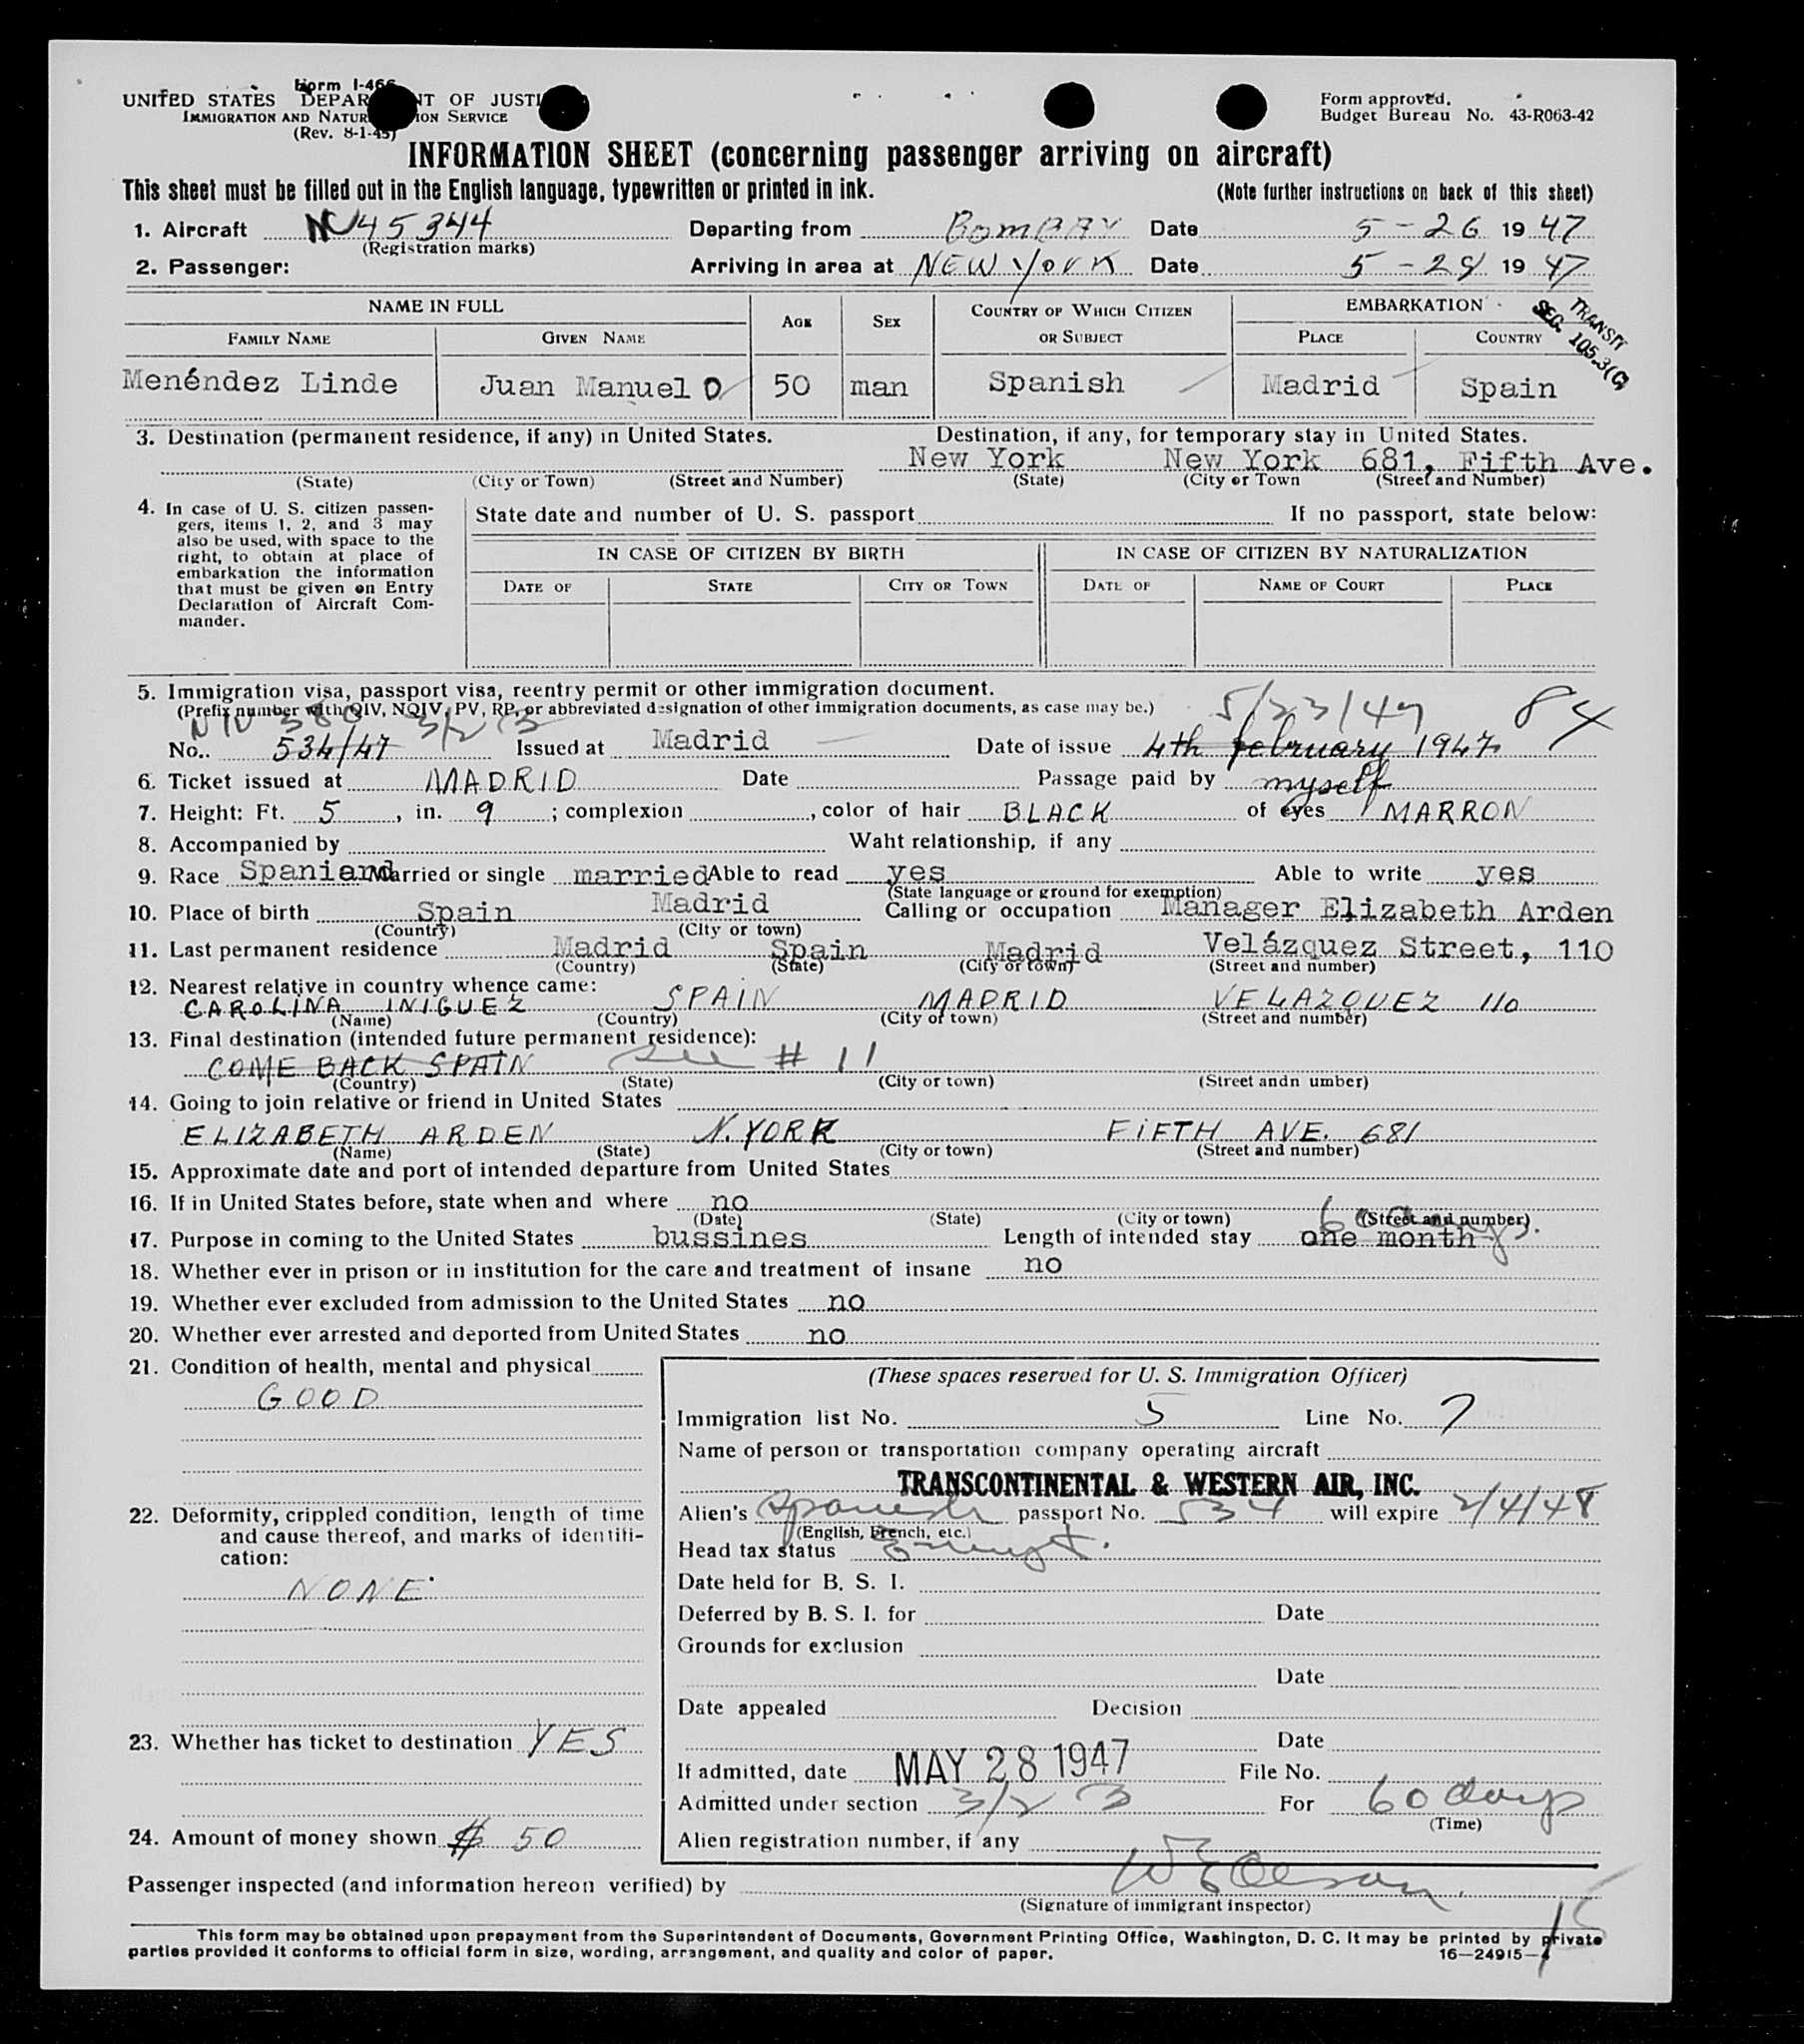 Form I-466
UNITED STATES DEPAR NT OF JUSTI
IMMIGRATION AND NATUR ION SERVICE
(Rev. 8-1-45)
Form approved.
Budget Bureau No. 43-R063-42
INFORMATION SHEET (concerning passenger arriving on aircraft)
This sheet must be filled out in the English language, typewritten or printed in ink. (Note further instructions on back of this sheet)
1. Aircraft NC45344 Departing from BOMBAY Date 5-26 1947
(Registration marks)
2. Passenger: Arriving in area at NEW YORK Date 5-28 1947
TRANSIT
SEC. 105.3(C)
NAME IN FULL AGE SEX COUNTRY OF WHICH CITIZEN OR SUBJECT EMBARKATION
FAMILY NAME GIVEN NAME PLACE COUNTRY
Menéndez Linde Juan Manuel D 50 man Spanish Madrid Spain
3. Destination (permanent residence, if any) in United States. Destination, if any, for temporary stay in United States.
New York New York 681, Fifth Ave.
(State) (City or Town) (Street and Number) (State) (City or Town (Street and Number)
4. In case of U. S. citizen passen-
gers, items 1, 2, and 3 may
also be used, with space to the
right, to obtain at place of
embarkation the information
that must be given on Entry
Declaration of Aircraft Com-
mander.
State date and number of U. S. passport If no passport, state below:
IN CASE OF CITIZEN BY BIRTH IN CASE OF CITIZEN BY NATURALIZATION
DATE OF STATE CITY OR TOWN DATE OF NAME OF COURT PLACE
5. Immigration visa, passport visa, reentry permit or other immigration document.
(Prefix number with QIV, NQIV, PV, RP, or abbreviated designation of other immigration documents, as case may be.)
NIV 380 3/2 3 5/23/47 84
No.. 534/47 Issued at Madrid Date of issue 4th february 1947
6. Ticket issued at MADRID Date Passage paid by myself
7. Height: Ft. 5, in. 9; complexion , color of hair BLACK of eyes MARRON
8. Accompanied by Waht relationship, if any
9. Race Spaniard Married or single married Able to read yes Able to write yes
(State language or ground for exemption)
10. Place of birth Spain Madrid Calling or occupation Manager Elizabeth Arden
(Country) (City or town)
11. Last permanent residence Madrid Spain Madrid Velázquez Street, 110
(Country) (State) (City or town) (Street and number)
12. Nearest relative in country whence came:
CAROLINA INIGUEZ SPAIN MADRID VELAZQUEZ 110
(Name) (Country) (City or town) (Street and number)
13. Final destination (intended future permanent residence):
COME BACK SPAIN see # 11
(Country) (State) (City or town) (Street andn umber)
14. Going to join relative or friend in United States
ELIZABETH ARDEN N.YORK FIFTH AVE. 681
(Name) (State) (City or town) (Street and number)
15. Approximate date and port of intended departure from United States
16. If in United States before, state when and where no
(Date) (State) (City or town) (Street and number)
60 days.
17. Purpose in coming to the United States bussines Length of intended stay one month
18. Whether ever in prison or in institution for the care and treatment of insane no
19. Whether ever excluded from admission to the United States no
20. Whether ever arrested and deported from United States no
21. Condition of health, mental and physical
GOOD
22. Deformity, crippled condition, length of time
and cause thereof, and marks of identifi-
cation:
NONE
23. Whether has ticket to destination YES
24. Amount of money shown $ 50
(These spaces reserved for U. S. Immigration Officer)
Immigration list No. 5 Line No. 7
Name of person or transportation company operating aircraft
TRANSCONTINENTAL & WESTERN AIR, INC.
Alien's Spanish passport No. 534 will expire 2/4/48
(English, French, etc.)
Head tax status Exempt.
Date held for B. S. I.
Deferred by B. S. I. for Date
Grounds for exclusion
Date
Date appealed Decision
Date
If admitted, date MAY 28 1947 File No.
Admitted under section 3/2 3 For 60 days
(Time)
Alien registration number, if any
Passenger inspected (and information hereon verified) by W E Olson
(Signature of immigrant inspector)
This form may be obtained upon prepayment from the Superintendent of Documents, Government Printing Office, Washington, D. C. It may be printed by private
parties provided it conforms to official form in size, wording, arrangement, and quality and color of paper. 16—24915—